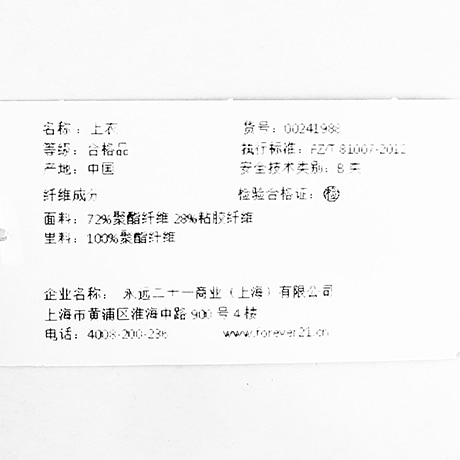 名称：上衣 货号：00241988
等级：合格品 执行标准：FZ/T 81007-2012
产地：中国 安全技术类别：B 类
纤维成分 检验合格证：检
面料：72%聚酯纤维 28%粘胶纤维
里料：100%聚酯纤维
企业名称： 永远二十一商业（上海）有限公司
上海市黄浦区淮海中路 900 号 4 楼
电话：4008-200-236 www.forever21.cn